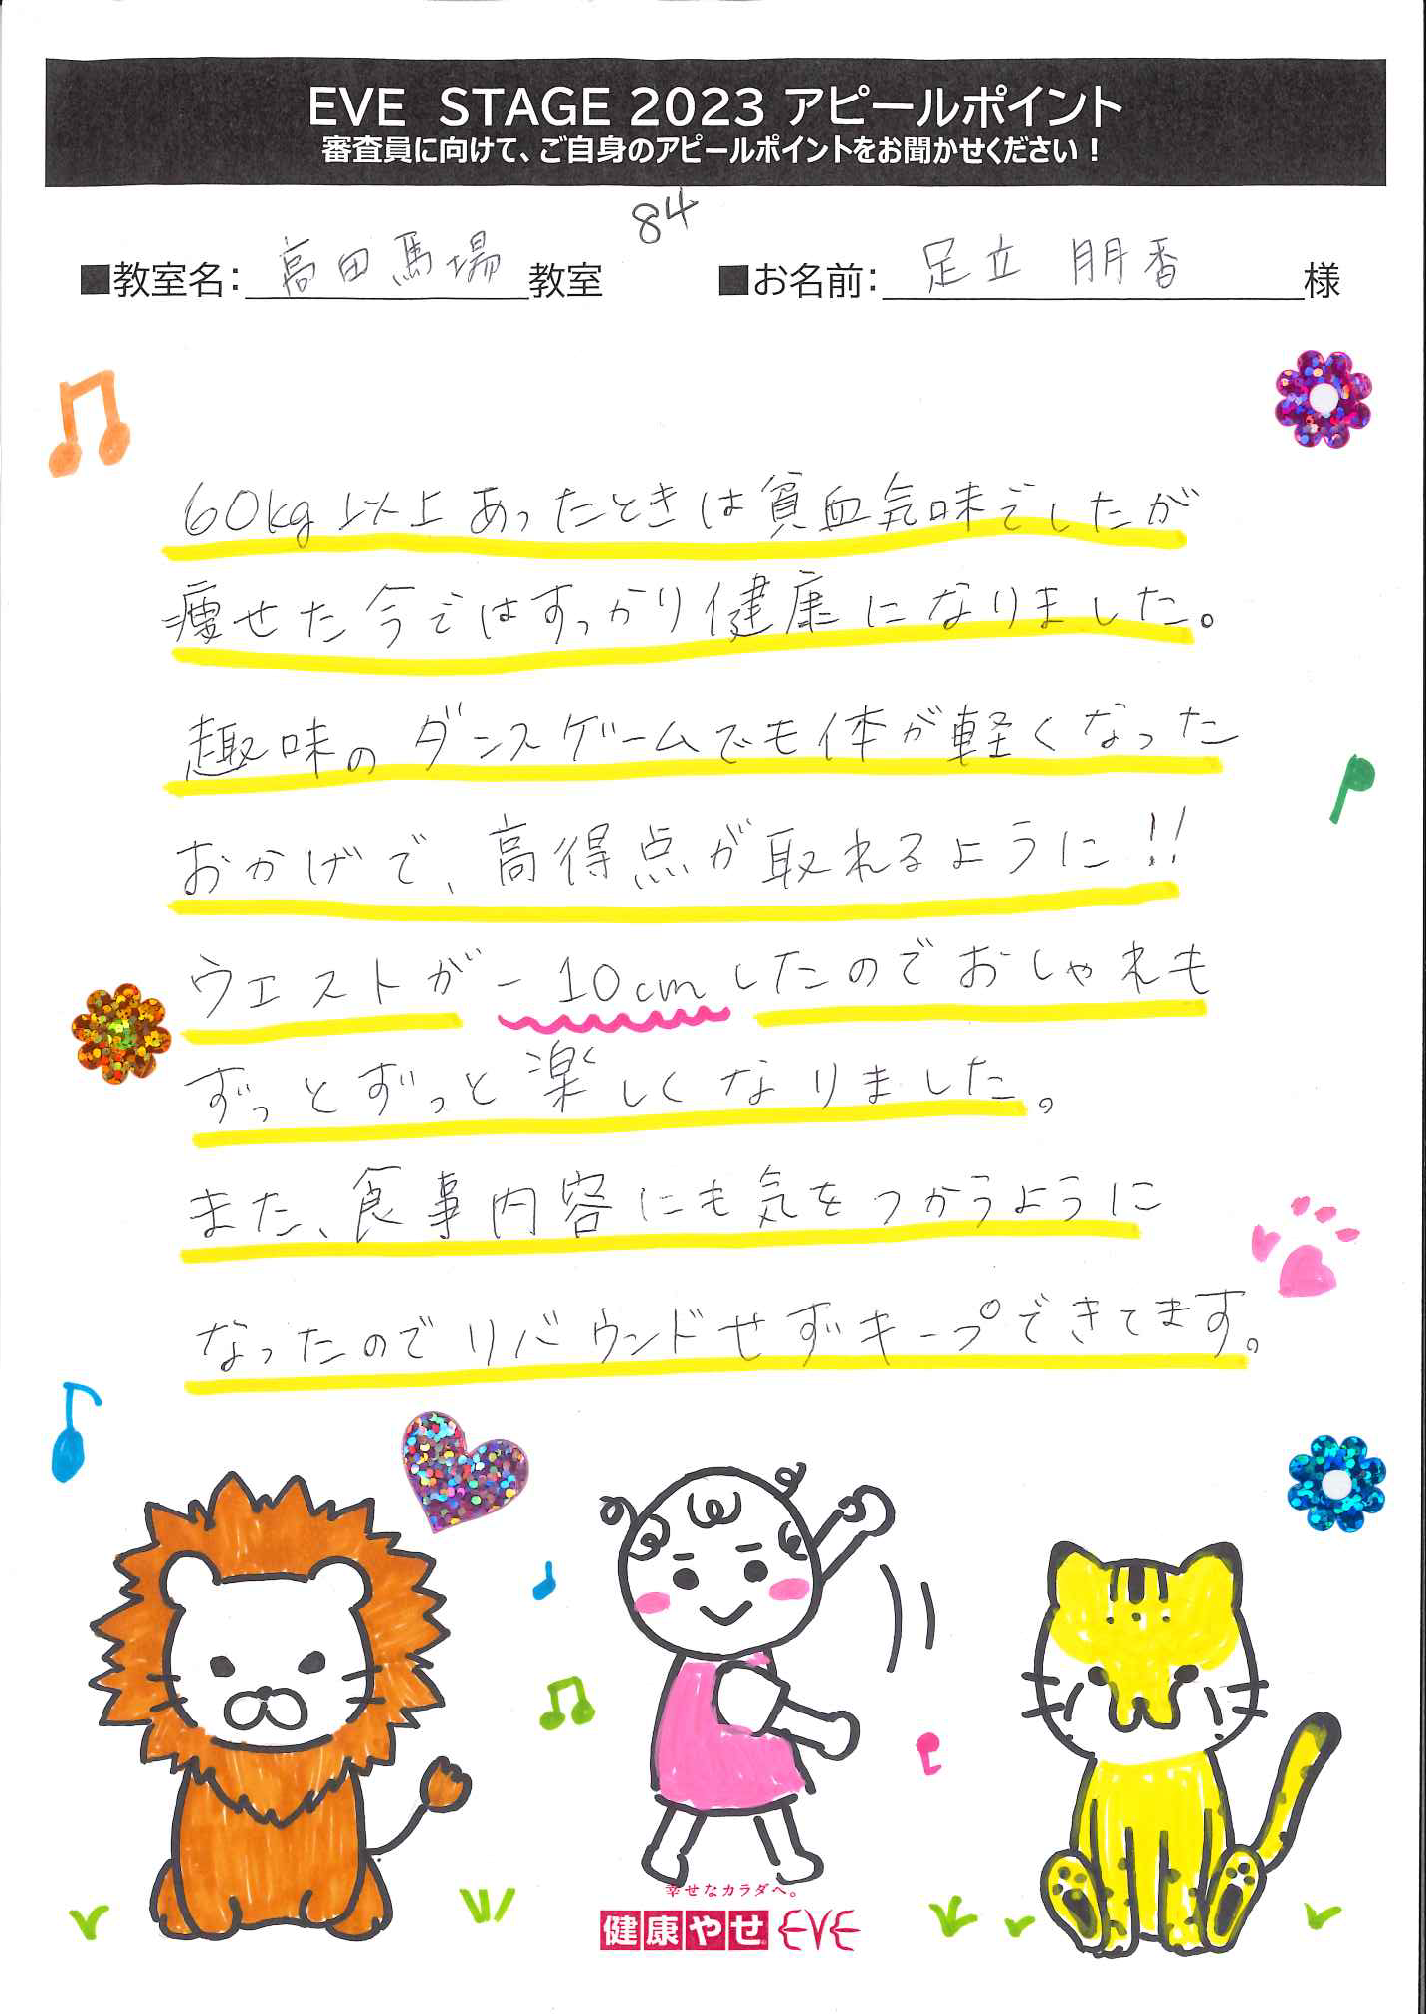 EVE STAGE 2023 アピールポイント
審査員に向けて、ご自身のアピールポイントをお聞かせください！
84
■教室名：高田馬場教室 ■お名前：足立 朋香 様
60kg以上あったときは貧血気味でしたが
痩せた今ではすっかり健康になりました。
趣味のダンスゲームでも体が軽くなった
おかげで、高得点が取れるように!!
ウエストが－10cmしたのでおしゃれも
ずっとずっと楽しくなりました。
また、食事内容にも気をつかうように
なったのでリバウンドせずキープできてます。
幸せなカラダへ。
健康やせ EVE